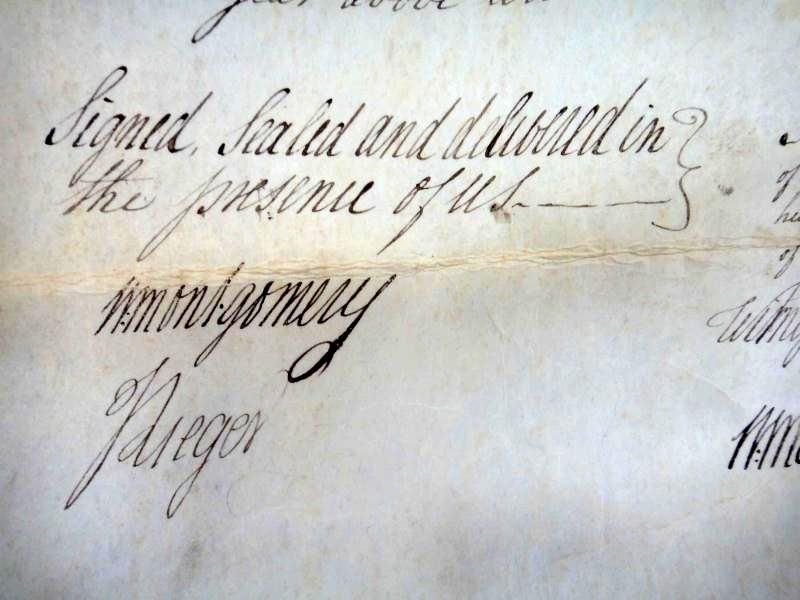 year above
Signed, Sealed and delivered in
the presence of us
Wm: Montgomery
of
of